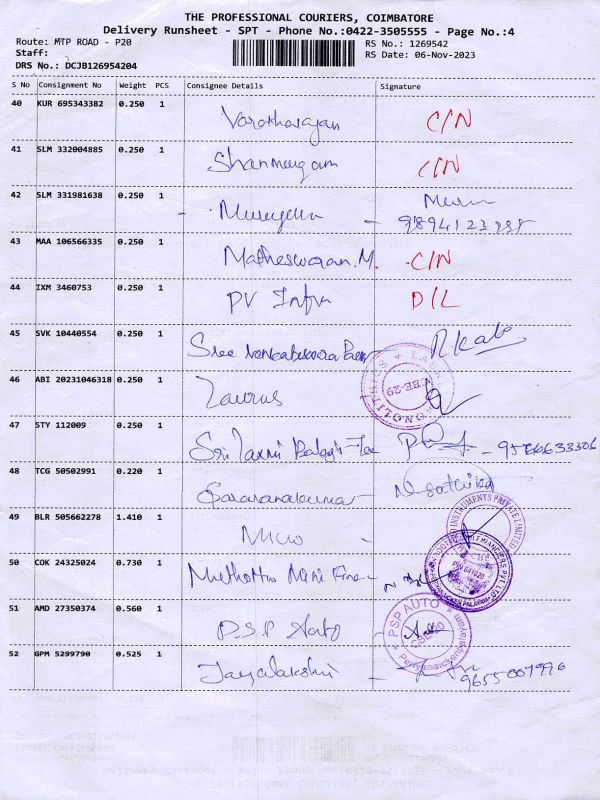 THE PROFESSIONAL COURIERS, COIMBATORE
Delivery Runsheet - SPT - Phone No.:0422-3505555 - Page No.:4
Route: MTP ROAD - P20
RS No.: 1269542
Staff:
RS Date: 06-Nov-2023
DRS No.: DCJB126954204
S No Consignment No Weight PCS Consignee Details Signature
40 KUR 695343382 0.250 1
Varatharajan C/N
41 SLM 332004885 0.250 1
Shanmugam C/N
42 SLM 331981638 0.250 1
Murugan -
43 MAA 106566335 0.250 1
Matheswaran.M. C/N
44 IXM 3460753 0.250 1
PV Infra D/L
45 SVK 10440554 0.250 1
Sree
46 ABI 20231046318 0.250 1
Taurus
CBE-29
47 STY 112009 0.250 1
Sri Laxmi Balaji - 9566633306
48 TCG 50502991 0.220 1
Saravanakumar N. Sathiya
49 BLR 505662278 1.410 1
Micro
INSTRUMENTS PRIVATE LIMITED
50 COK 24325024 0.730 1
Muthoottu Mini
51 AMD 27350374 0.560 1
P.S.P Auto
PSP AUTO
52 GPM 5299790 0.525 1
Jayalakshmi - 9655007976